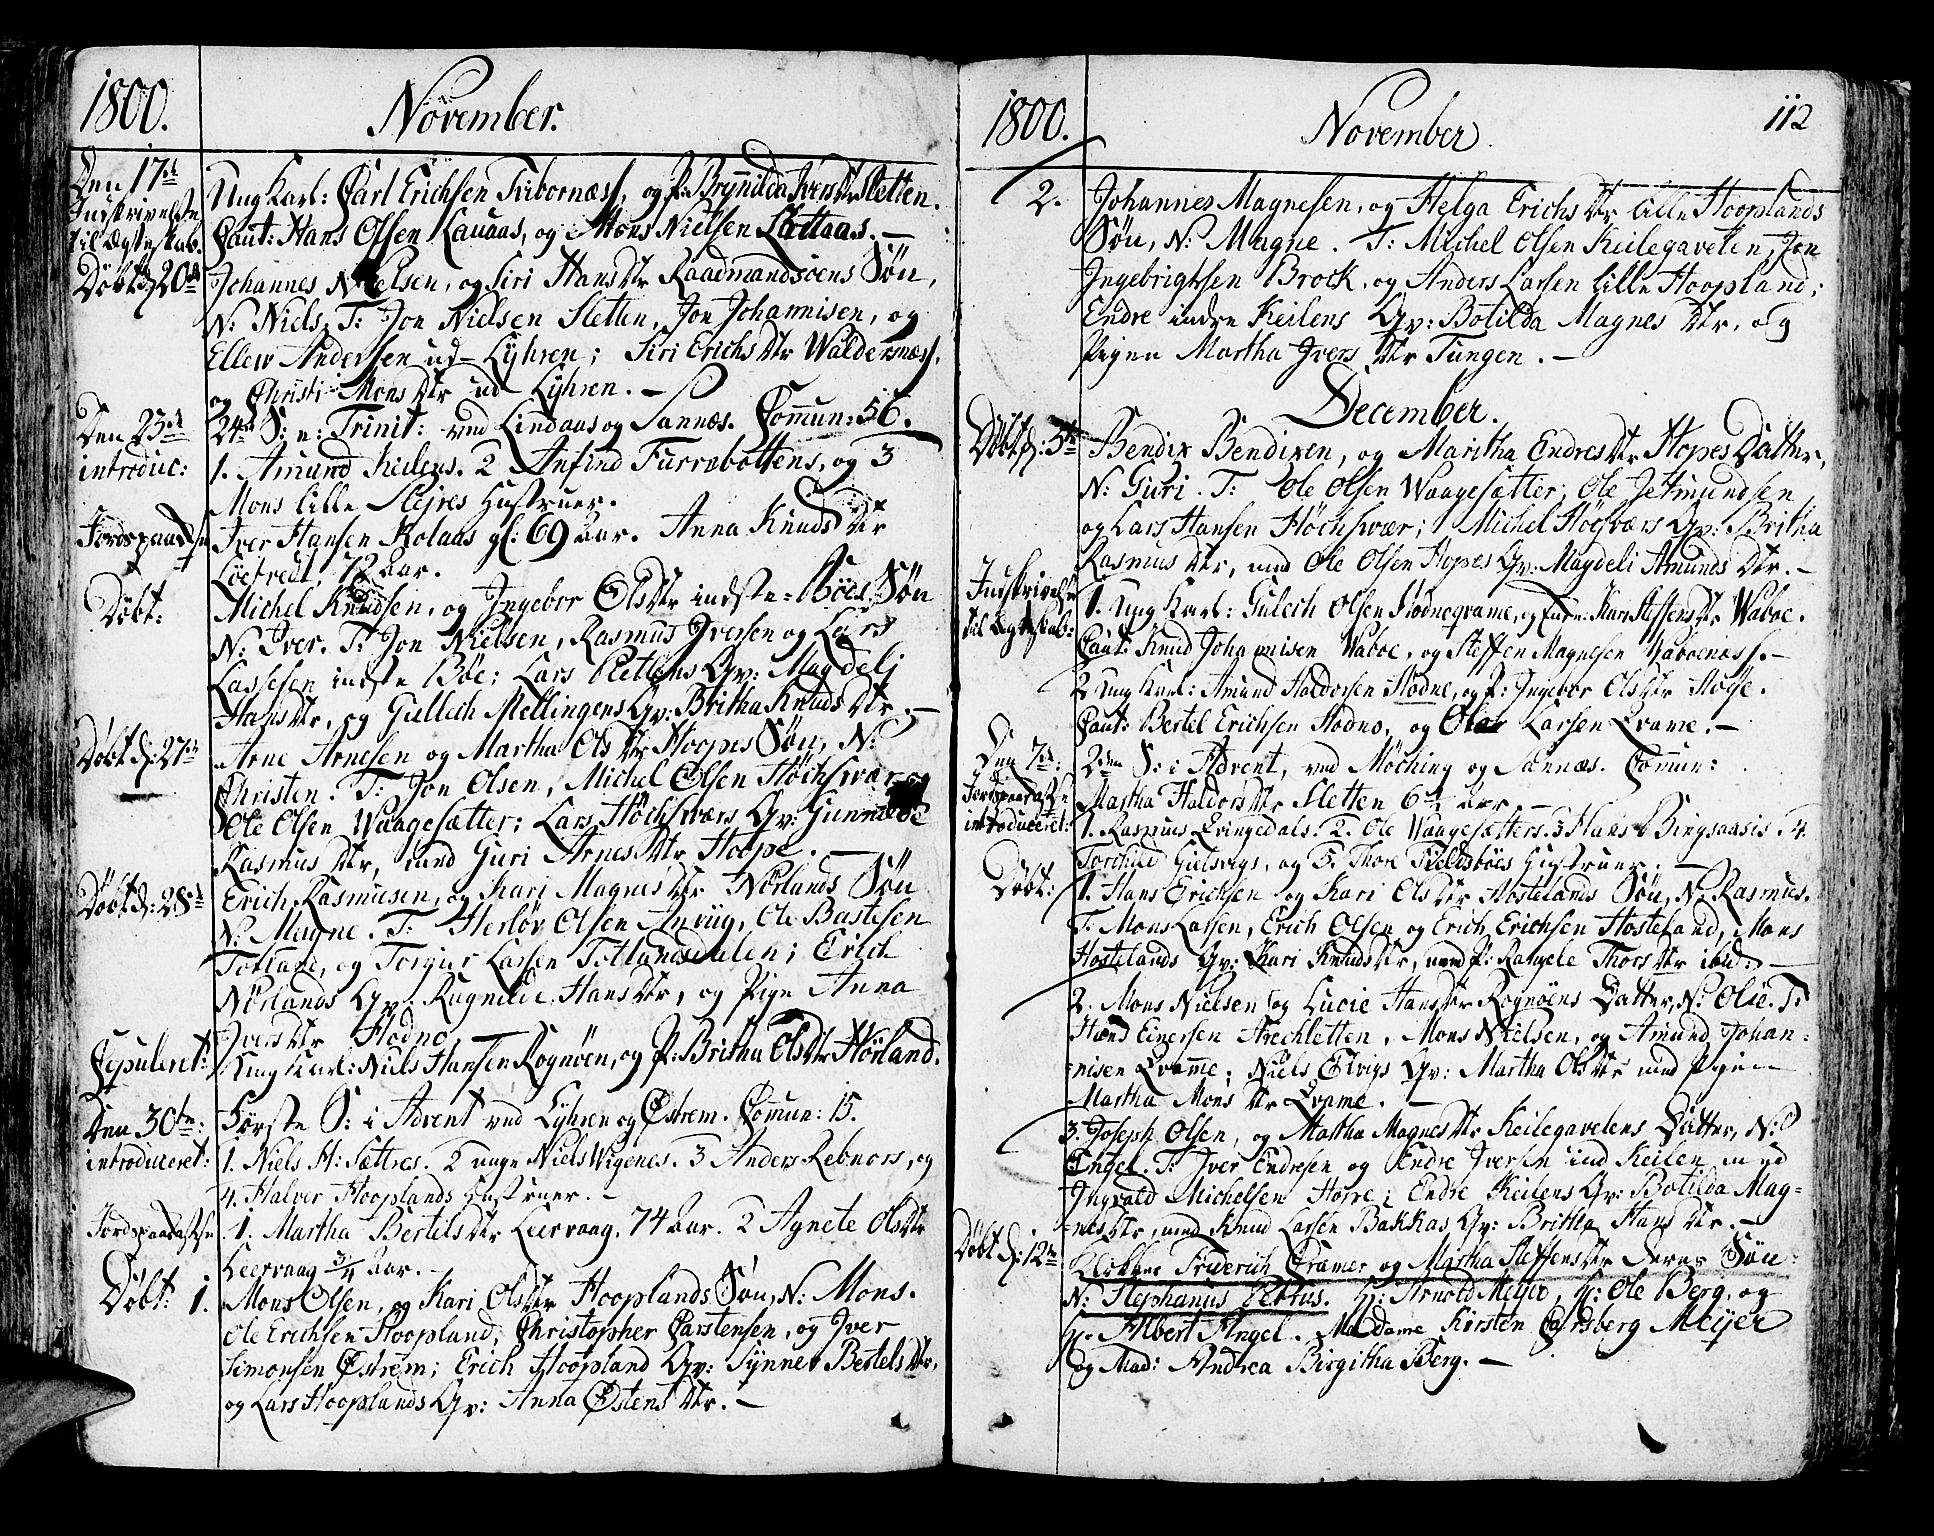 1800. November.
Den 17de Ung Karl: Carl Erichsen Fiboernæss, og P: Brynnilda Ivers Dtr Sletten.
Indskrivelse
til Ægteskab. Caut: Hans Olsen Kauaas, og Mons Nielsen Lottaas. —
Døbt d: 20de Johannes Nielsen, og Siri Hans Dtr Raadmandsöens Søn,
N: Niels. T: Jon Nielsen Sletten, Jon Johannisen, og
Ellew Andersen ud-Lyhren; Siri Erichs Dtr Waldersnæss,
og Christi Mons Dtr ud Lyhren. —
Den 23de 24de S: e: Trinit: ved Lindaas og Sannæs. Comun: 56.
introduc: 1. Amund Keilens. 2 Anfind Furrebottens, og 3
Mons lille Slejres Hustruer.
Jordspaakastelse Iver Hansen Kolaas gl: 69 Aar. Anna Knuds Dtr
Løefredt, 72 Aar.
Døbt: Michel Knudsen, og Ingebor Ols Dtr indste-Böes Søn
N: Iver. T: Jon Nielsen, Rasmus Iversen og Lars
Lassesen indste Böe; Lars Gv: Magdeli
Hans Dtr, og Gullech Mellingens Gv: Britha Knuds Dtr. —
Døbt d: 27de Arne Arnesen og Martha Ols Dtr Hoopes Søn, N:
Christen. T: Jon Olsen, Michel Olsen Höchsvær og
Ole Olsen Waagesætter; Lars Höchsværs Gv: Gunnilde
Rasmus Dtr, med Guri Arnes Dtr Hoope. —
Døbt d: 28de Erich Rasmusen, og Kari Magnes Dtr Nörlands Søn
N: Magne. T: Herlöv Olsen Anviig, Ole Bastesen
Totland, og Torgier Larsen Totlandsdalen; Erich
Nörlands Gv: Rugnilde Hans Dtr, og Pige Anna
Ivers Dtr Hodne. —
Copuleret: Ung Karl: Niels Hansen Rognöen, og P: Britha Ols Dtr Hörland.
Den 30te: Første S: i Advent ved Lyhren og Østrem. Comun: 15.
introduceret: 1. Niels H: Sættres. 2 unge Niels Wigenes. 3 Anders Rebnors, og
4. Halver Hooplands Hustruer. —
Jordspaakastelse 1. Martha Bertels Dtr Leervaag, 74 Aar. 2 Agnete Ols Dtr
Leervaag 3/4 Aar. —
Døbt: 1. Mons Olsen, og Kari Ols Dtr Hooplands Søn, N: Mons.
Ole Erichsen Hoopland, Christopher Carstensen, og Iver
Simonsen Østrem; Erich Hoopland Gv: Synnev Bertels Dtr,
og Lars Hooplands Gv: Anna Østens Dtr. —
1800. November. 112
2. Johannes Magnesen, og Helga Erichs Dtr lille Hooplands
Søn, N: Magne. T: Michel Olsen Keilegavelen, Jon
Ingebrightsen Brock, og Anders Larsen lille Hoopland;
Endre indre Keilens Gv: Botilda Magnes Dtr, og
Pigen Martha Ivers Dtr Tungen. —
December.
Døbt d: 5te Bendix Bendixen, og Maritha Endres Dtr Hopes Datter,
N: Guri. T: Ole Olsen Waagesætter, Ole Jetmundsen
og Lars Hansen Höchsvær; Michel Högsværs Gv: Britha
Rasmus Dtr, med Ole Olsen Hopes Gv: Magdeli Amunds Dtr. —
Indskrivelse
til Ægteskab: 1. Ung Karl: Gulech Olsen Hodneqvame, og Enke: Kari Steffens Dtr Waboe.
Caut: Knud Johannisen Vaboe, og Steffen Magnesen Vaboenæss. —
2 Ung Karl: Amund Haldorsen Hodne, og P: Ingebor Ols Dtr Hoge.
Caut: Bertel Erichsen Hodne, og Olav Larsen Qvame. —
Den 7de: 2den S: i Advent, ved Möching og Sannæs. Comun:
Jordspaakastelse Martha Haldors Dtr Sletten 6 1/2 Aar. —
introduceret: 1. Rasmus Qvingedals. 2. Ole Waagesætters. 3 Hans Bingsaasis. 4
Torchild Gielsvigs, og 5. Thore Fieldsböes Hustruer. —
Døbt: 1. Hans Erichsen og Kari Ols Dtr Hostelands Søn, N: Rasmus.
T: Mons Larsen, Erich Olsen og Erich Erichsen Hosteland, Mons
Hostelands Gv: Kari Knuds Dtr, med P: Rangele Thors Dtr ibid: —
2. Mons Nielsen og Lucie Hans Dtr Rognöens Datter, N: Olse. T:
Hans Einersen Arechletten, Mons Nielsen, og Amund Johan-
nisen Qvamme; Niels Elvigs Gv: Martha Ols Dtr med Pigen
Martha Mons Dtr Qvame. —
3. Joseph Olsen, og Martha Magnes Dtr Keilegavelens Datter, N:
Engel. T: Iver Endresen og Endre Iversen ind Keilen med
Ingvald Michelsen Hopre; Endre Keilens Gv: Botilda Mag-
nes Dtr, med Knud Larsen Bakkas Gv: Britha Hans Dtr. —
Døbt d: 12te Klokker Friderich Cramer og Martha Steffens Dtr deres Søn:
N: Stephanus Petrus. Hr: Arnold Meyer, Hr: Ole Berg, og
Hr: Albert Angel. Madame Kirsten Carsberg Meyer
og Mad: Andrea Birgitha Berg. —